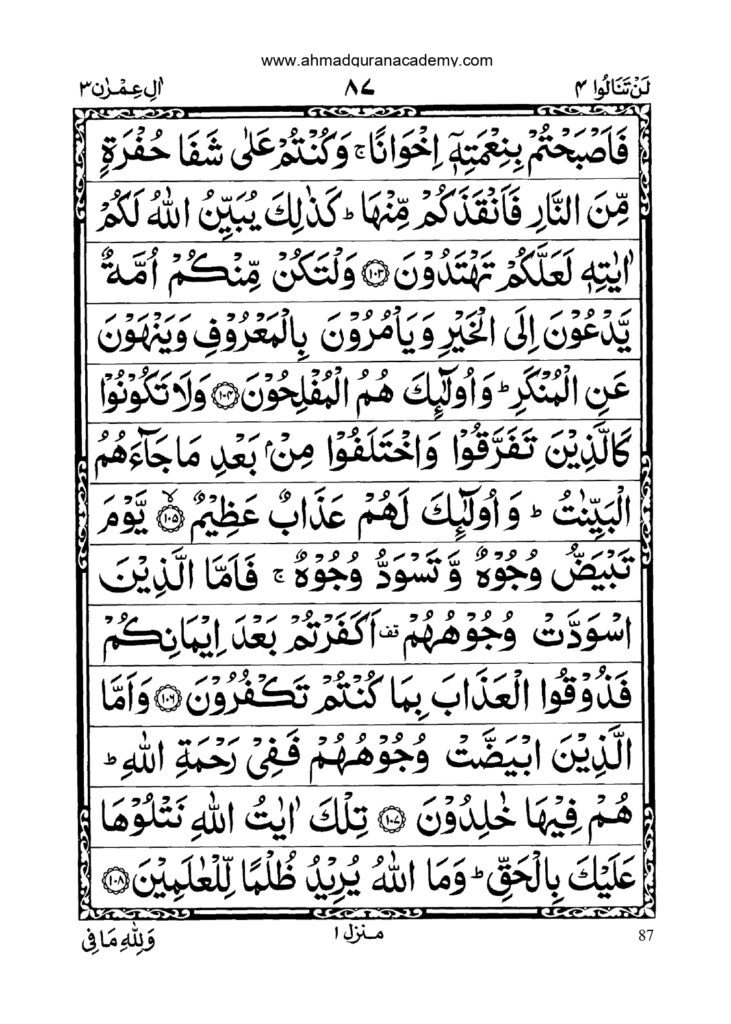 www.ahmadquranacademy.com
لَنْ تَنَالُوا ۴ ۸۷ اٰلِ عِمْرٰن ۳
فَاَصْبَحْتُمْ بِنِعْمَتِهٖۤ اِخْوَانًا ۚ وَكُنْتُمْ عَلٰى شَفَا حُفْرَةٍ
مِّنَ النَّارِ فَاَنْقَذَكُمْ مِّنْهَا ؕ كَذٰلِكَ يُبَيِّنُ اللّٰهُ لَكُمْ
اٰيٰتِهٖ لَعَلَّكُمْ تَهْتَدُوْنَ ﴿۱۰۳﴾ وَلْتَكُنْ مِّنْكُمْ اُمَّةٌ
يَّدْعُوْنَ اِلَى الْخَيْرِ وَيَاْمُرُوْنَ بِالْمَعْرُوْفِ وَيَنْهَوْنَ
عَنِ الْمُنْكَرِ ؕ وَاُولٰٓئِكَ هُمُ الْمُفْلِحُوْنَ ﴿۱۰۴﴾ وَلَا تَكُوْنُوْا
كَالَّذِيْنَ تَفَرَّقُوْا وَاخْتَلَفُوْا مِنْۢ بَعْدِ مَا جَآءَهُمُ
الْبَيِّنٰتُ ؕ وَاُولٰٓئِكَ لَهُمْ عَذَابٌ عَظِيْمٌ ﴿۱۰۵﴾ۙ يَّوْمَ
تَبْيَضُّ وُجُوْهٌ وَّتَسْوَدُّ وُجُوْهٌ ۚ فَاَمَّا الَّذِيْنَ
اسْوَدَّتْ وُجُوْهُهُمْ قف اَكَفَرْتُمْ بَعْدَ اِيْمَانِكُمْ
فَذُوْقُوا الْعَذَابَ بِمَا كُنْتُمْ تَكْفُرُوْنَ ﴿۱۰۶﴾ وَاَمَّا
الَّذِيْنَ ابْيَضَّتْ وُجُوْهُهُمْ فَفِيْ رَحْمَةِ اللّٰهِ ؕ
هُمْ فِيْهَا خٰلِدُوْنَ ﴿۱۰۷﴾ تِلْكَ اٰيٰتُ اللّٰهِ نَتْلُوْهَا
عَلَيْكَ بِالْحَقِّ ؕ وَمَا اللّٰهُ يُرِيْدُ ظُلْمًا لِّلْعٰلَمِيْنَ ﴿۱۰۸﴾
87 منزل ۱ وَلِلّٰهِ مَا فِي